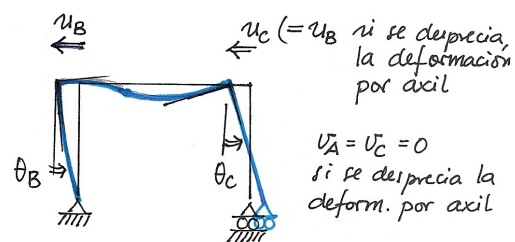 u_B
u_C (= u_B si se desprecia
la deformación
por axil
θ_B
θ_C
v_A = v_C = 0
si se desprecia la
deform. por axil